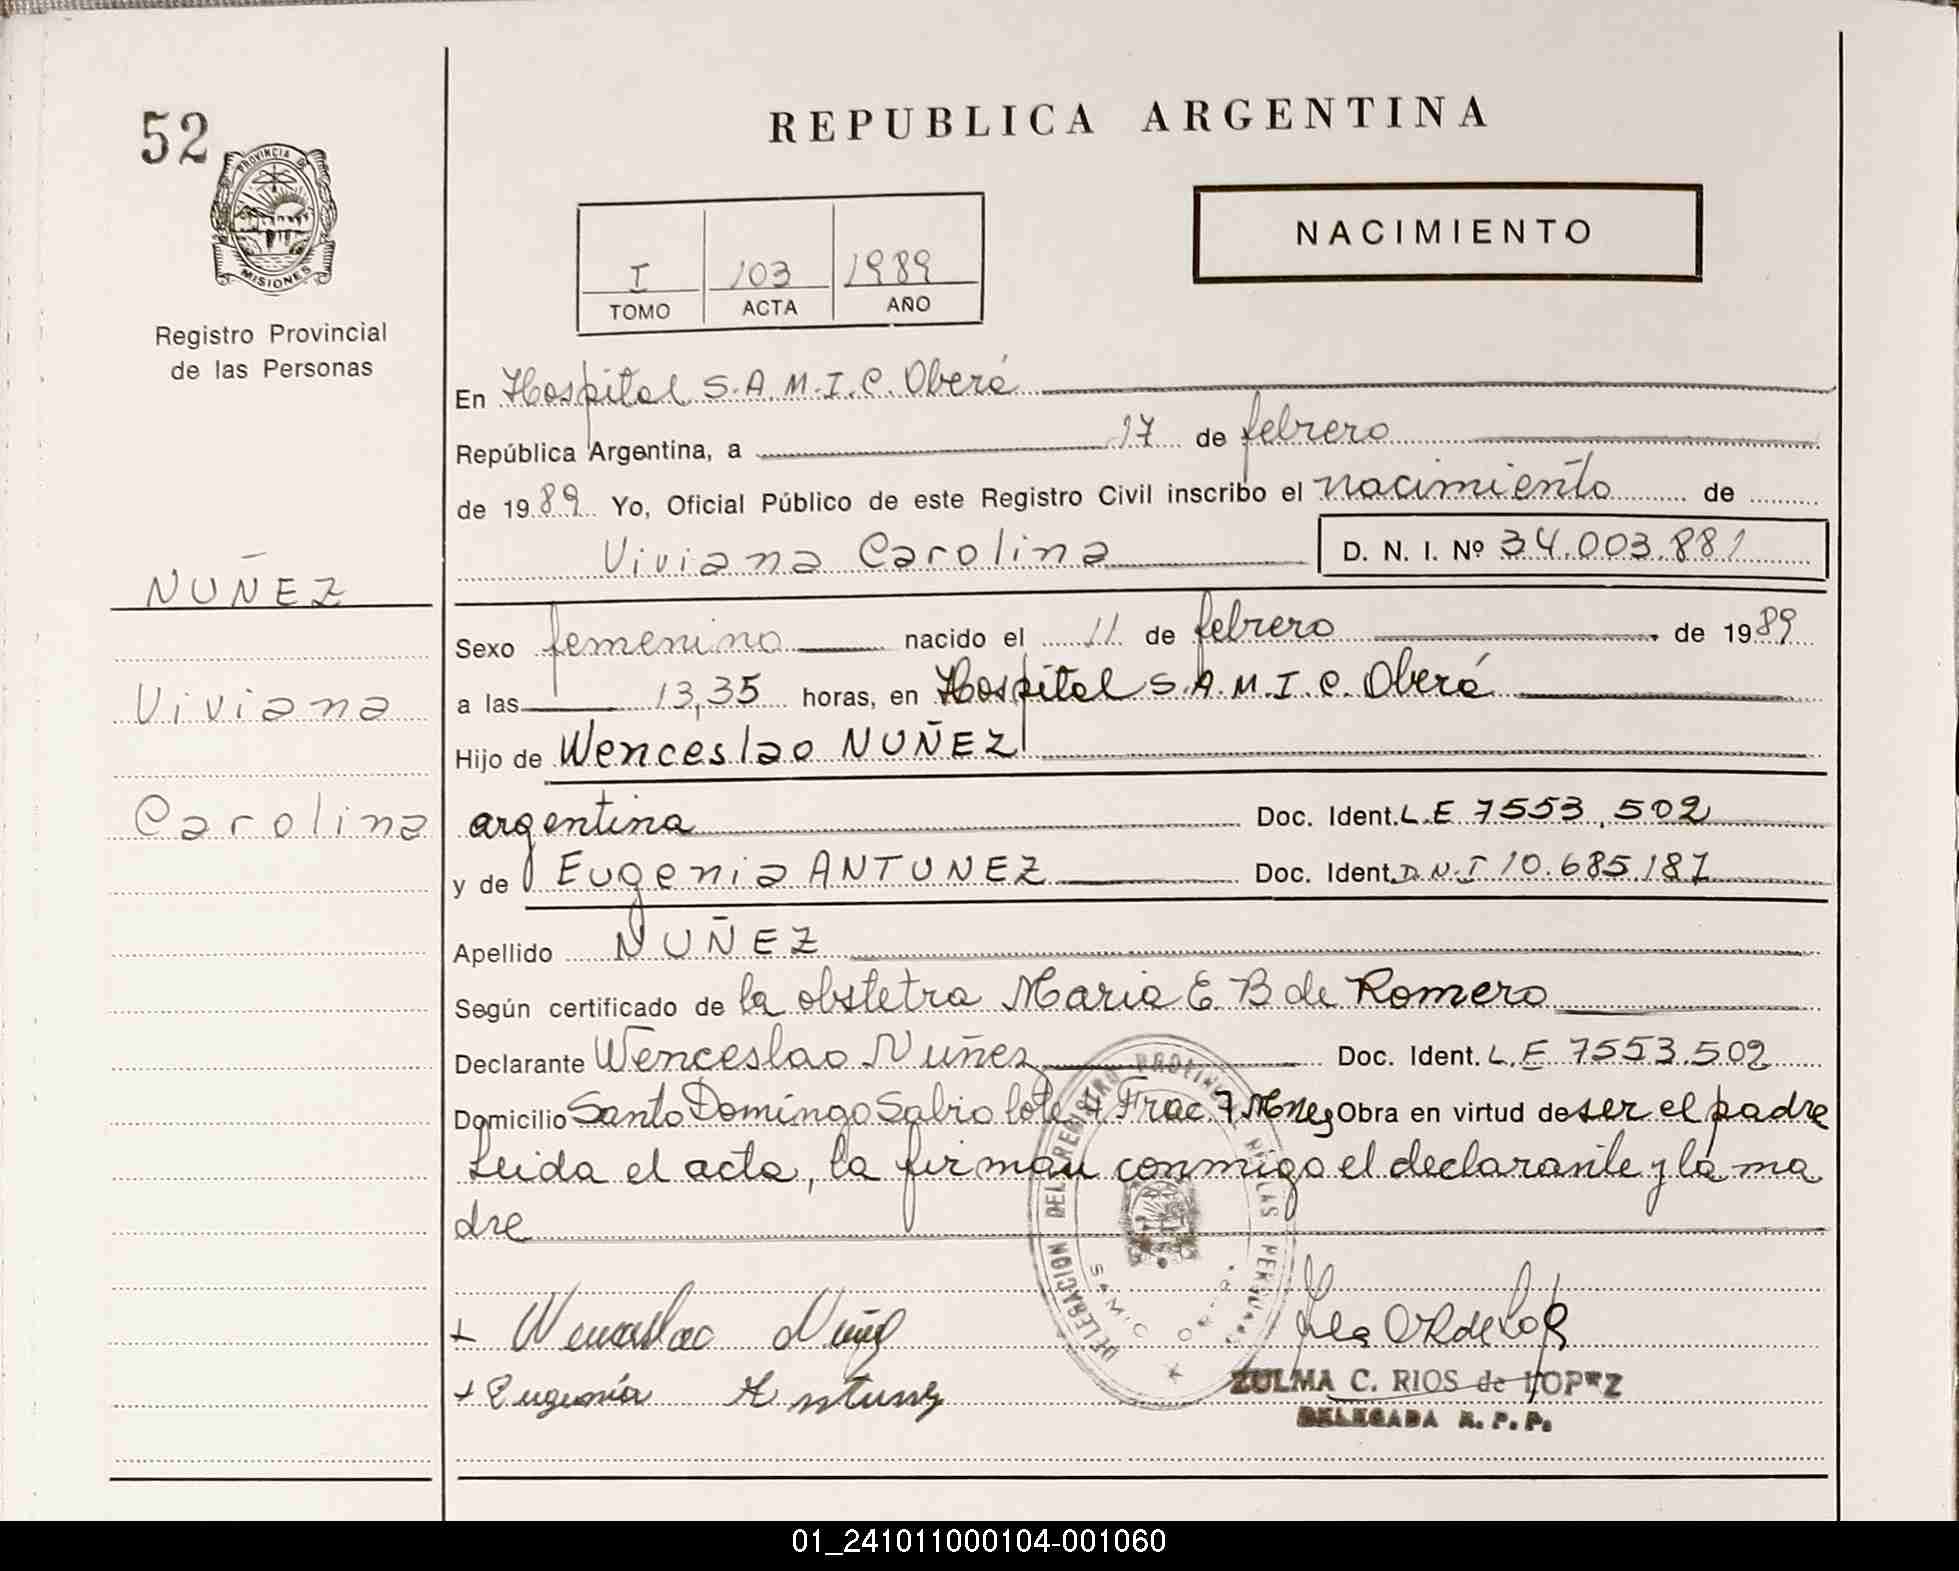 52
PROVINCIA DE
MISIONES
Registro Provincial
de las Personas
NUÑEZ
Viviana
Carolina
REPUBLICA ARGENTINA
NACIMIENTO
I 103 1989
TOMO ACTA AÑO
En Hospital S.A.M.I.C. Oberá
República Argentina, a 17 de febrero
de 1989 Yo, Oficial Público de este Registro Civil inscribo el nacimiento de
Viviana Carolina D. N. I. Nº 34.003.881
Sexo femenino nacido el 11 de febrero de 1989
a las 13,35 horas, en Hospital S.A.M.I.C. Oberá
Hijo de Wenceslao NUÑEZ
argentina Doc. Ident. L.E 7553.502
y de Eugenia ANTUNEZ Doc. Ident. D.N.I 10.685.187
Apellido NUÑEZ
Según certificado de la obstetra Maria E B de Romero
Declarante Wenceslao Nuñez Doc. Ident. L.E 7553.502
Domicilio Santo Domingo Sabio lote 4 Frac. 7 Mnes Obra en virtud de ser el padre
Leida el acta, la firman conmigo el declarante y la ma
dre
DELEGACION DEL REGISTRO PROVINCIAL DE LAS PERSONAS
SAMIC
+ Wenceslao Nuñez
+ Eugenia Antunez
ZULMA C. RIOS de LOPEZ
DELEGADA R. P. P.
01_241011000104-001060